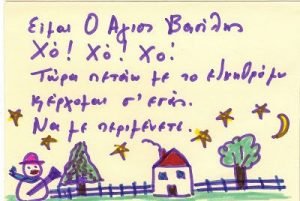 Είμαι Ο Άγιος Βασίλης
Χό! Χό! Χο!
Τώρα πετάω με το έλκηθρό μου
κι έρχομαι σ' εσάς.
Να με περιμένετε.